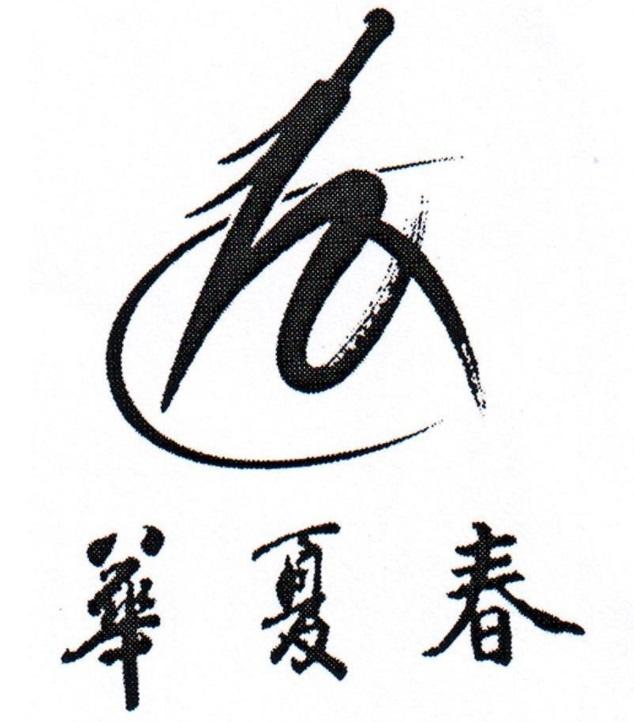 華夏春